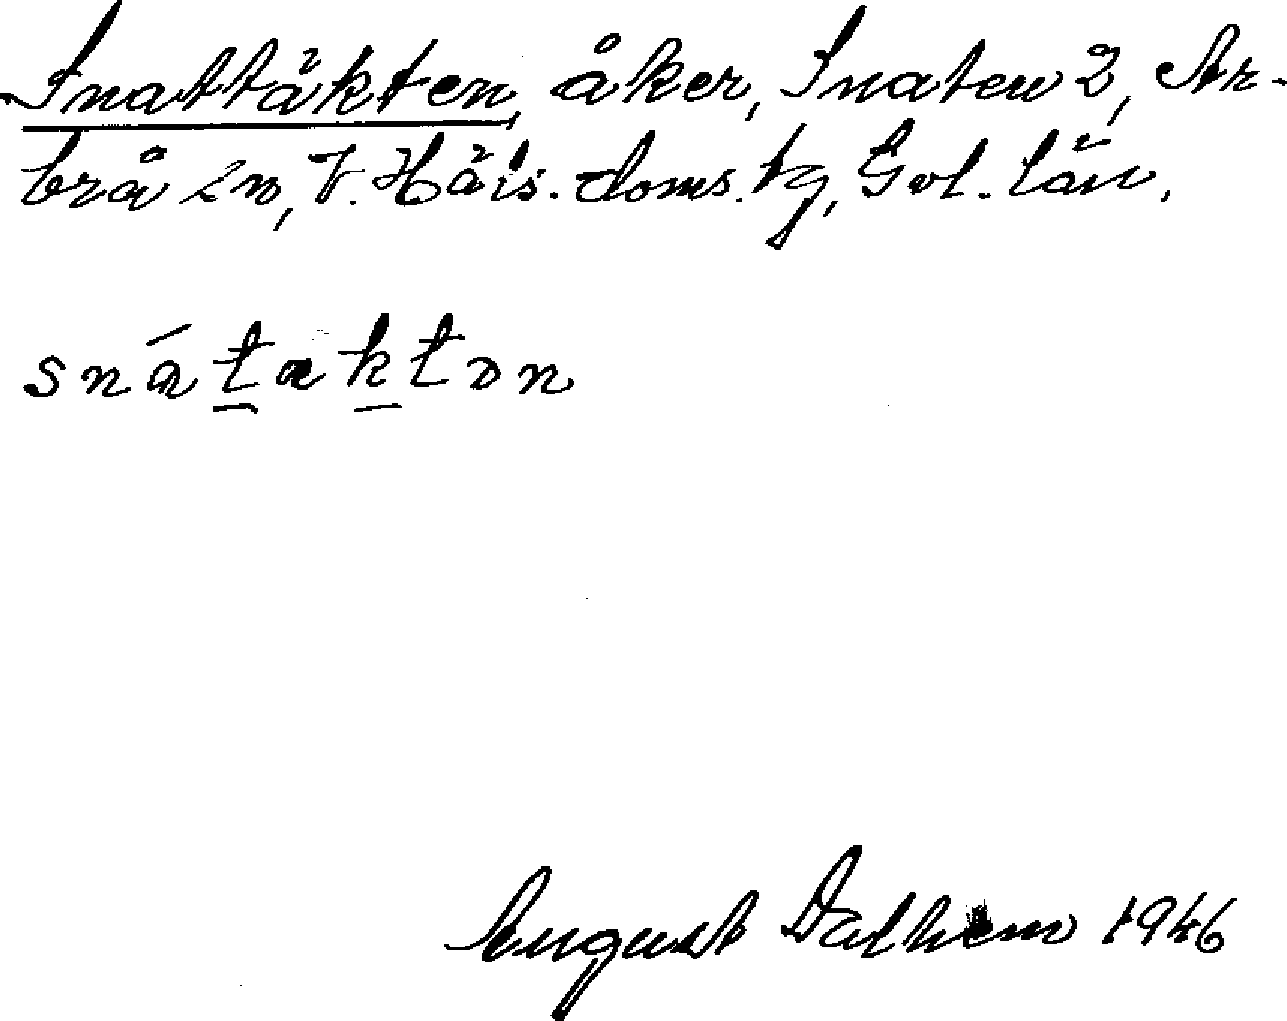 Snattäkten, åker, Snaten 2, Ar-
brå sn, V. Häls. doms. tg, Gvl. län.
snátæktən
August Dalhem 1946